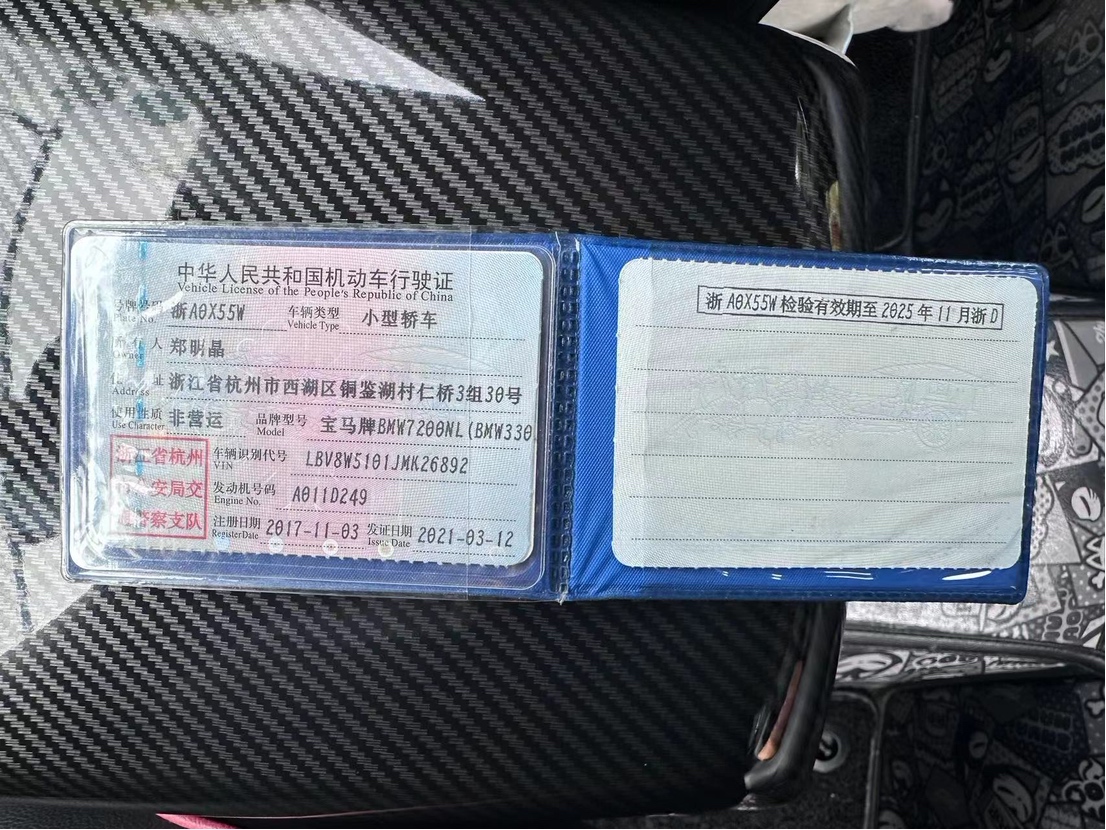 中华人民共和国机动车行驶证
Vehicle License of the People's Republic of China
号牌号码 浙A0X55W 车辆类型 小型轿车
Plate No. Vehicle Type
所有人 郑明晶
Owner
住址 浙江省杭州市西湖区铜鉴湖村仁桥3组30号
Address
使用性质 非营运 品牌型号 宝马牌BMW7200NL(BMW330
Use Character Model
浙江省杭州
市公安局交
通警察支队
车辆识别代号 LBV8W5101JMK26892
VIN
发动机号码 A011D249
Engine No.
注册日期 2017-11-03 发证日期 2021-03-12
Register Date Issue Date
浙A0X55W检验有效期至2025年11月浙D